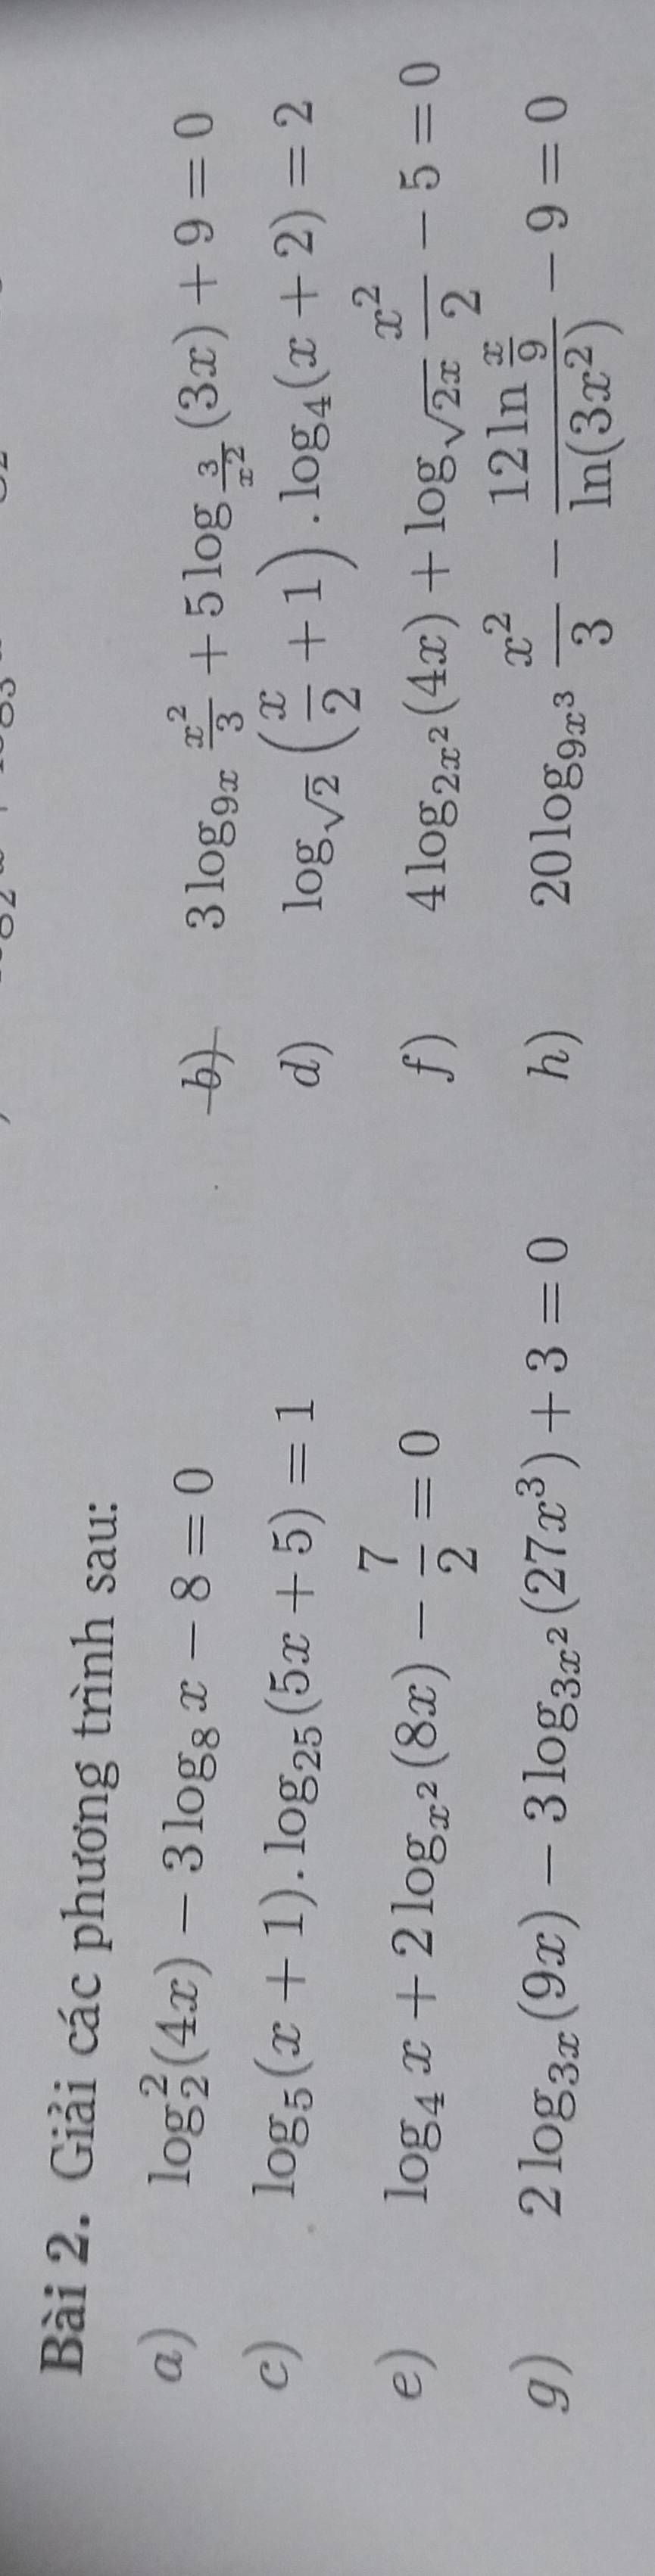 Bài 2. Giải các phương trình sau:
a) log₂²(4x) − 3 log₈ x − 8 = 0 b) 3 log_{9x} x²/3 + 5 log_{3/x²}(3x) + 9 = 0
c) log₅(x + 1). log₂₅(5x + 5) = 1 d) log_{√2} (x/2 + 1) . log₄(x + 2) = 2
e) log₄ x + 2 log_{x²}(8x) − 7/2 = 0 f) 4 log_{2x²}(4x) + log_{√2x} x²/2 − 5 = 0
g) 2 log_{3x}(9x) − 3 log_{3x²}(27x³) + 3 = 0 h) 20 log_{9x³} x²/3 − 12 ln x/9 / ln(3x²) − 9 = 0